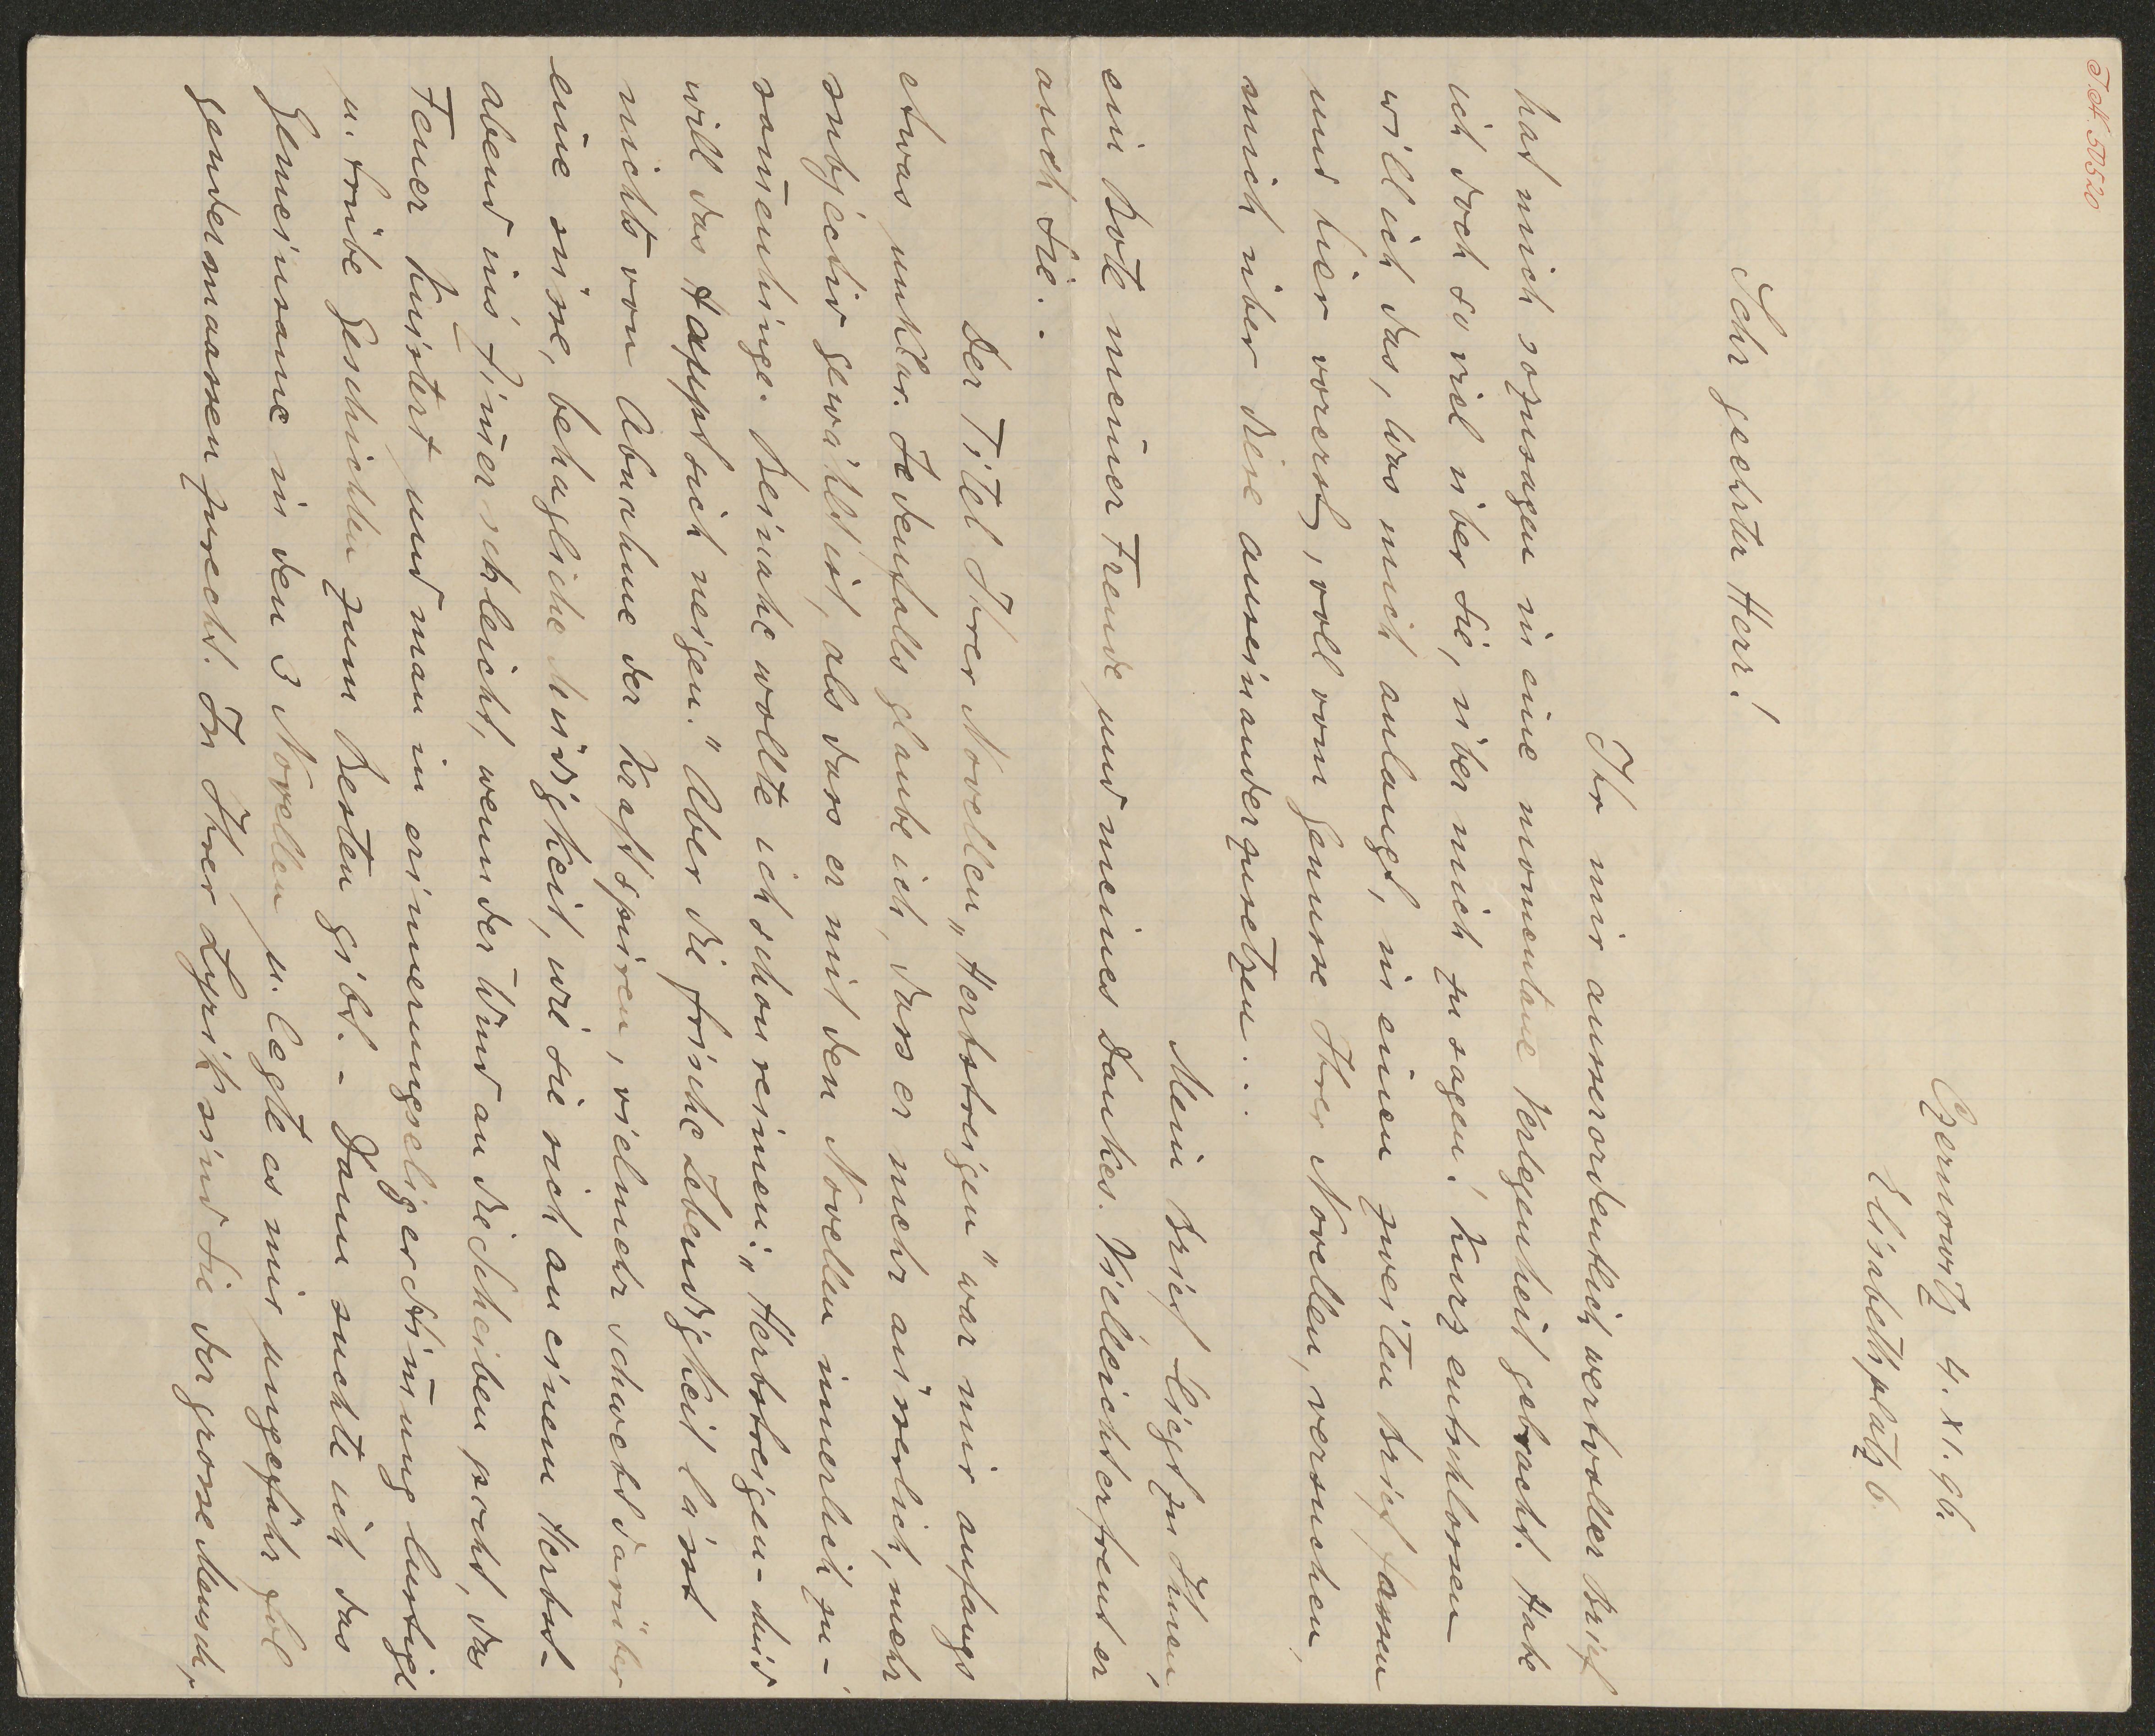 I.N. 50520
Czernowitz 4. XI. 96.
Elisabethplatz 6.
Sehr geehrter Herr!
Ihr mir ausserordentlich wertvoller Brief
hat mich sozusagen in eine momentane Verlegenheit gebracht. Habe
ich doch so viel über Sie, über mich zu sagen! Kurz entschlossen
will ich das, was mich anlangt, in einen zweiten Brief fassen
und hier vorerst, voll vom Genusse Ihrer Novellen, versuchen,
mich über diese auseinanderzusetzen...
Mein Brief liegt zu Ihnen,
ein Bote meiner Freude und meines Dankes. Vielleicht erfreut er
auch Sie..
Der Titel Ihrer Novellen „Herbstreigen" war mir anfangs
etwas unklar. Jedenfalls glaube ich, dass er mehr äusserlich, mehr
subjectiv gewählt ist, als dass er mit den Novellen innerlich zu-
sam̄enhinge. Beinahe wollte ich schon reimen: „Herbstreigen - müd
will das Haupt sich neigen." Aber die frische Lebendigkeit lässt
nichts von Abnahme der Kraft spüren, vielmehr schwebt darüber
eine süsse, behagliche Müdigkeit, wie sie sich an einem Herbst-
abend ins Zim̄er schleicht, wenn der Wind an die Scheiben pocht, das
Feuer knistert und man in erinnerungseliger Stim̄ung lustige
u. trübe Geschichten zum Besten gibt. - Dann suchte ich das
Gemeinsame in den 3 Novellen u. legte es mir ungefähr fol
gendermaassen zurecht. In Ihrer Lyrik sind Sie der grosse Mensch,